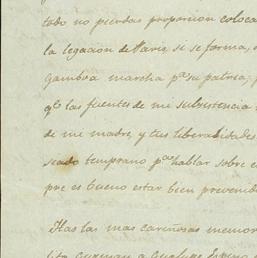 todo no pierdas proporcion coloca
la legacion de Paris si se forma,
Gamboa marcha pa su patria,
qe las fuentes de mi subsistencia
de mi madre, y tus liberalidades
seado temprano pa hablar sobre e
pue es bueno estar bien prevenid
Has las mas cariñosas memor
lita Guzman a Guadupe